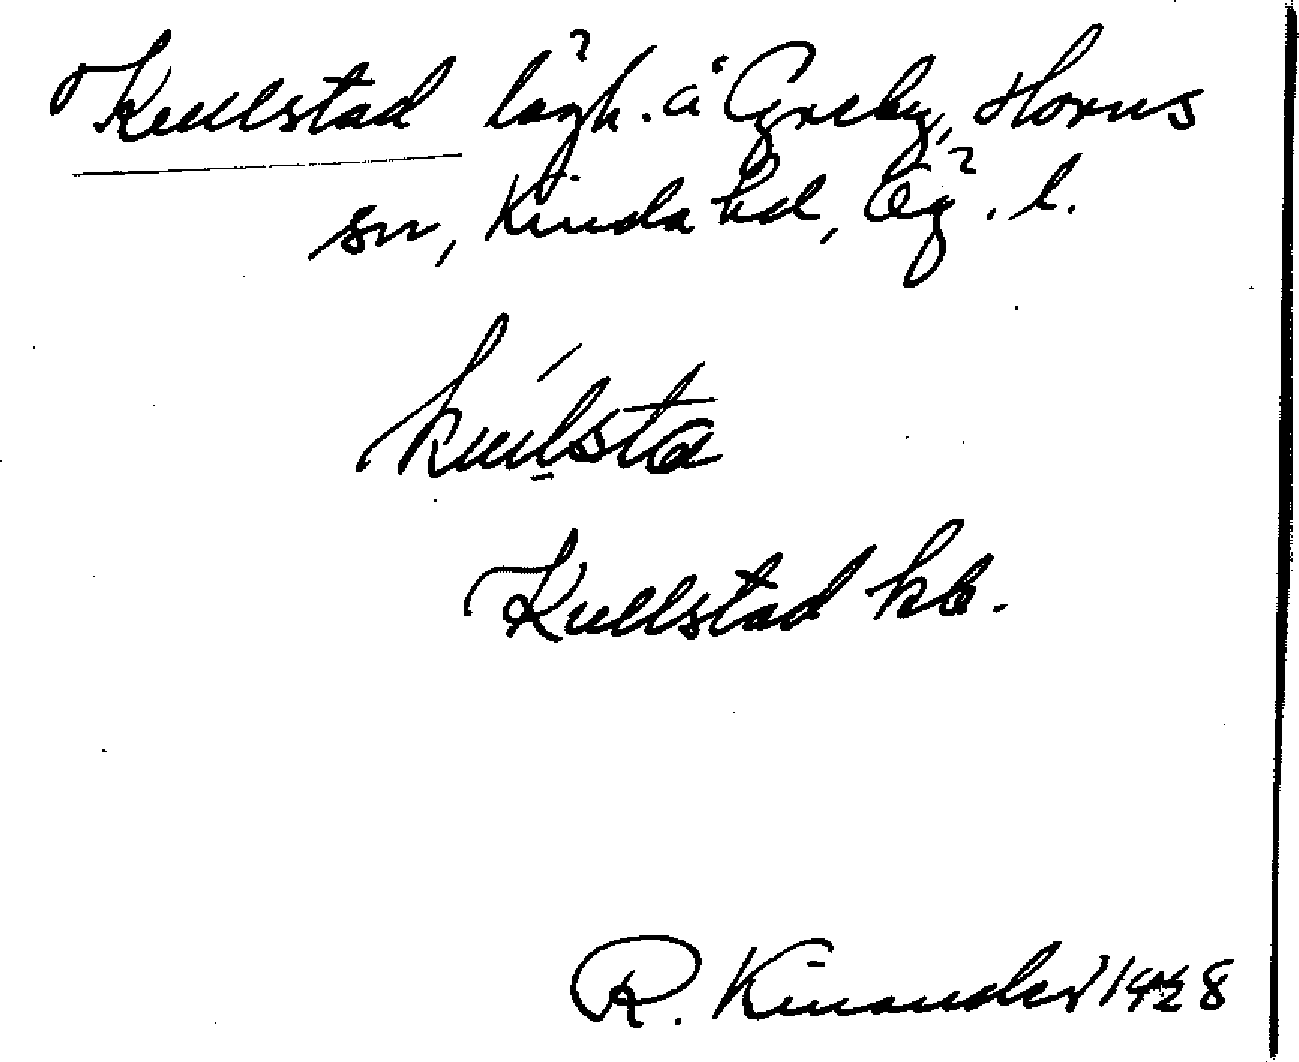 Kullstad lägh. å Cgneby, Horns
sn, Kinda hd, Ög. l.
kúlsta
Kullstad kb.
R. Kinander 1928